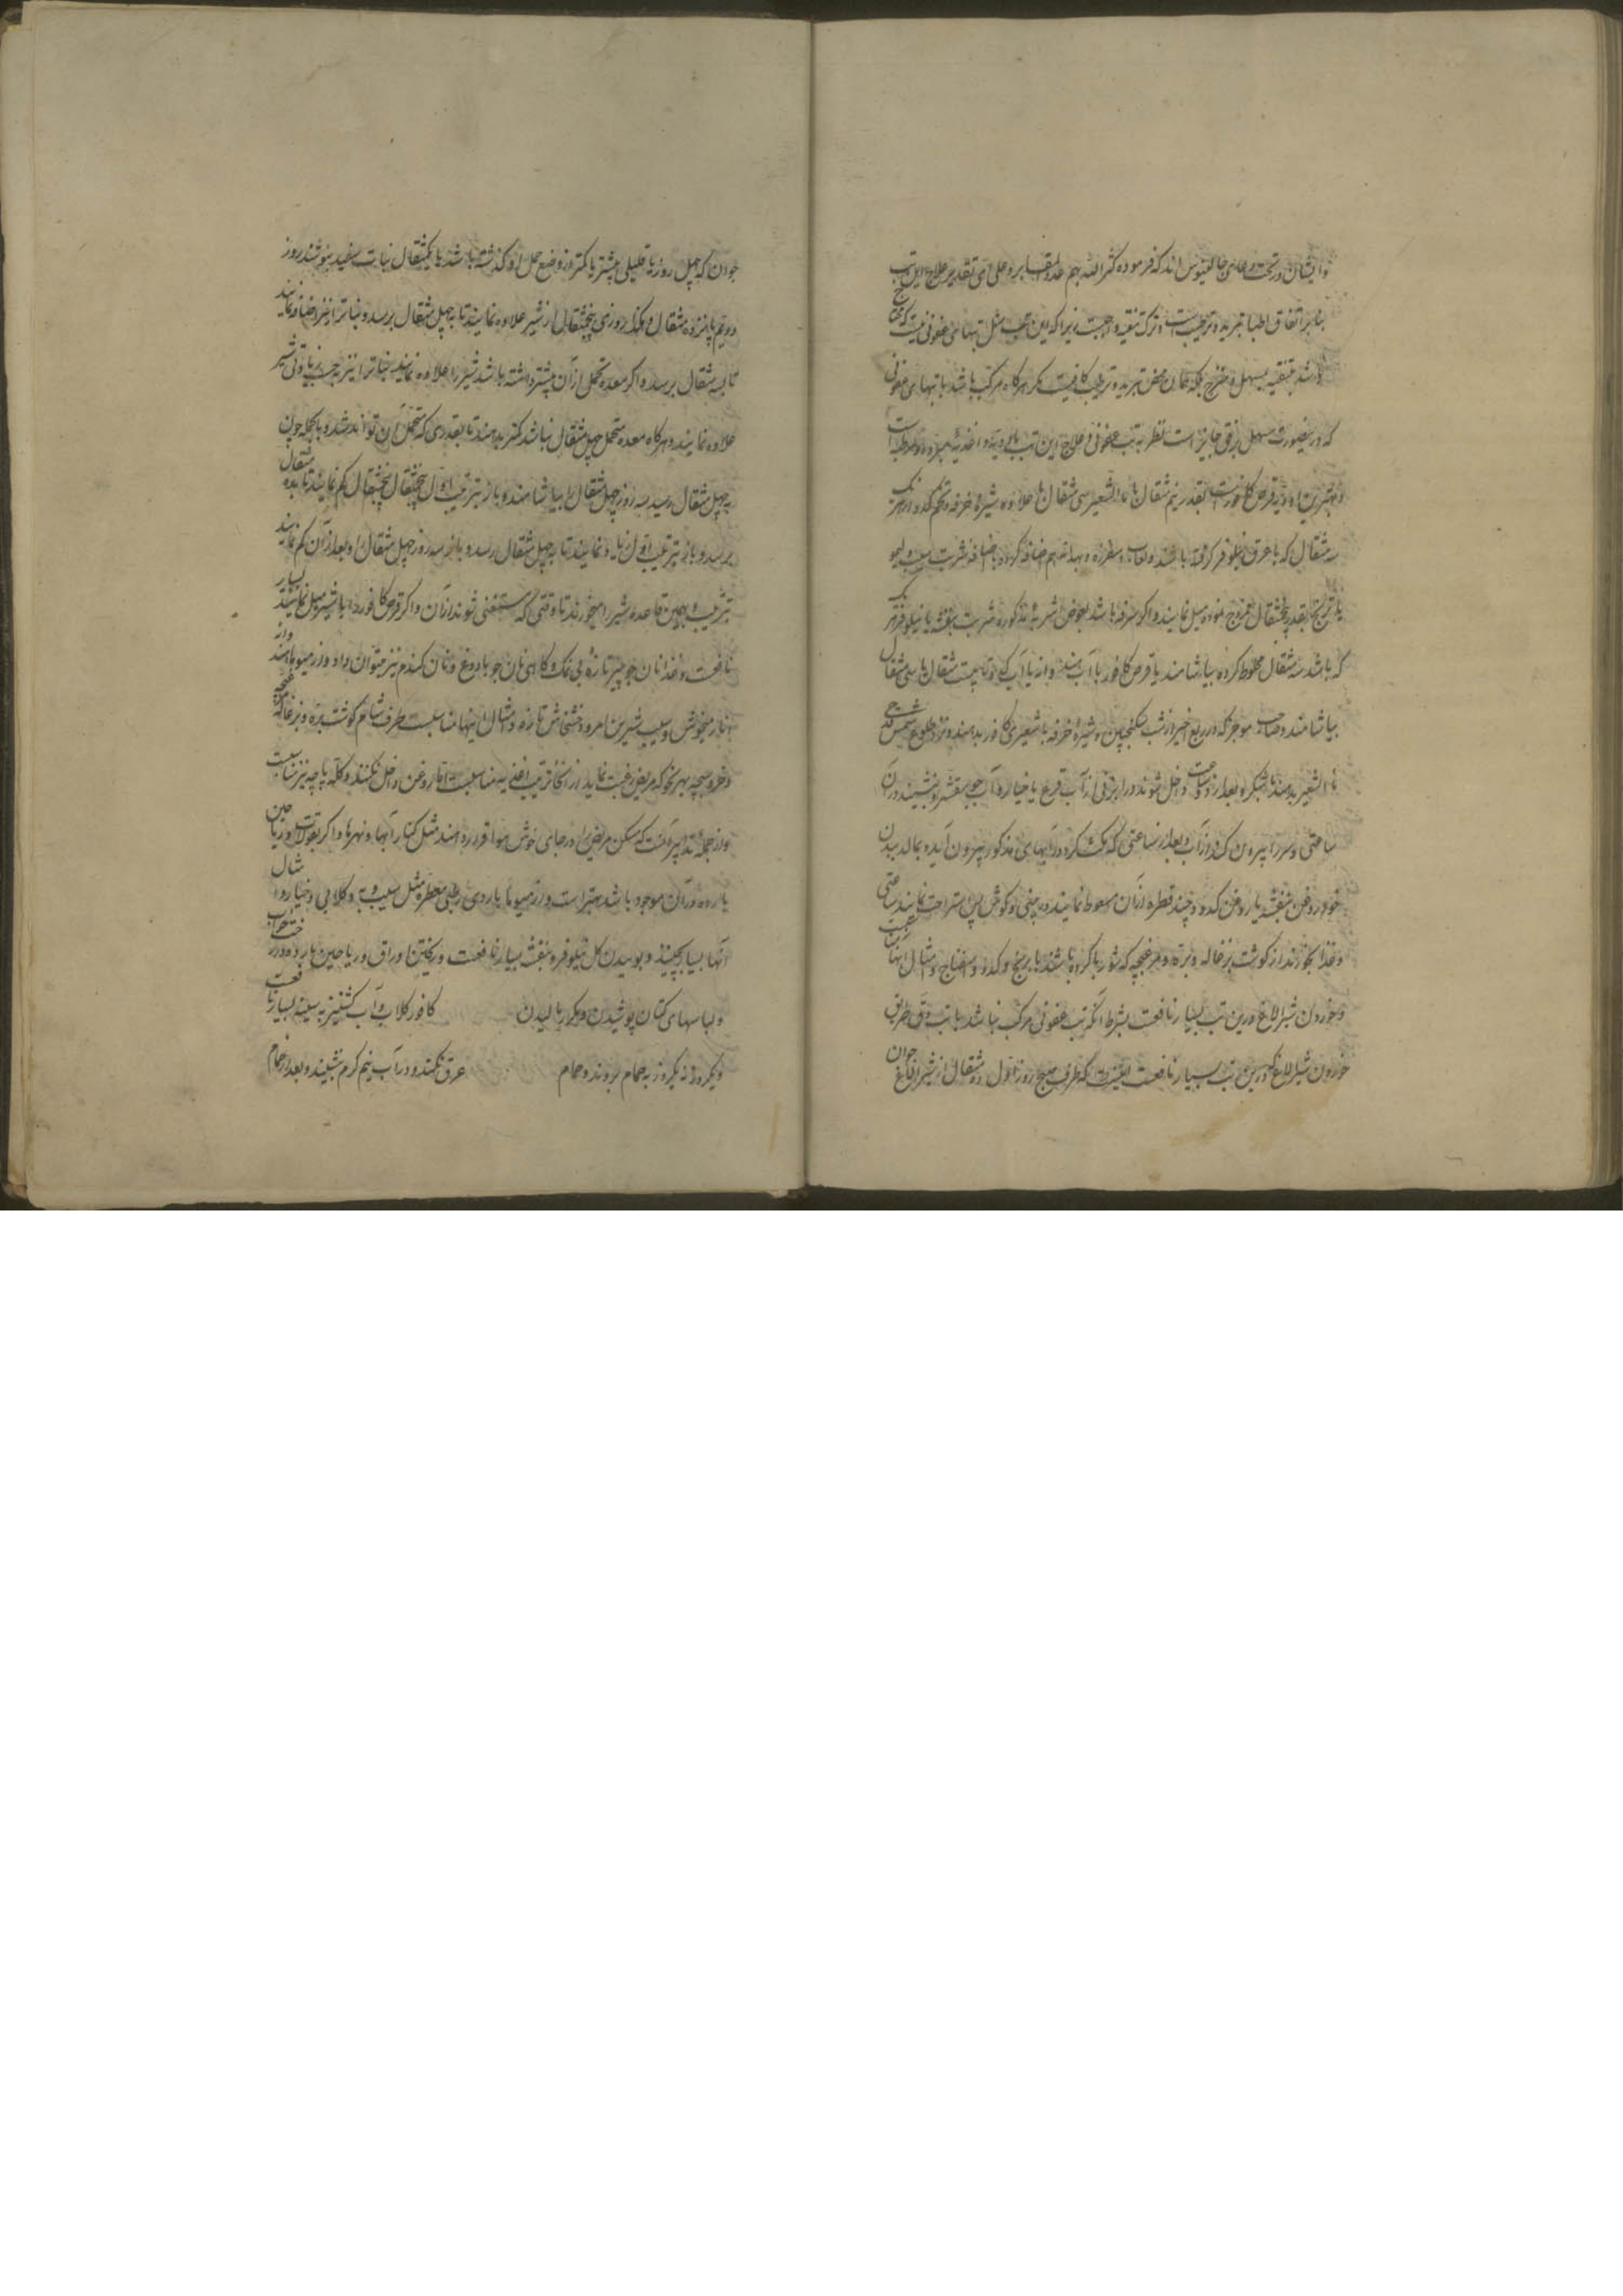 و ایشان در تحت دعای جالینوس اند که فرموده کثر الله بهم عدد المقابر و علی ای تقدیر علاج این تب
بنابر اتفاق اطبا تبرید و ترطیب است و ترک تنقیه واجبست زیرا که این تب مثل تبهای عفونی نیست که محتاج
باشد بتنقیه بمسهل و منضج بلکه همان محض تبرید و ترطیب کافیست مگر هرگاه مرکب باشد با تبهای عفونی
که درینصورت مسهل برفق جایز است نظر به تب عفونی و علاج این تب بادویه و اغذیه مبرده و مرطبه است
و بهترین ادویه قرص کافورست بقدر نیم مثقال با ماء الشعیر سی مثقال با علاوه شیره خرفه و تخم کدو از هر یک
سه مثقال که با عرق نیلوفر گرفته باشند و لعاب اسفرزه و بهدانه هم اضافه کرده باضافه شربت سیب و لیمو
یا ترنج بقدر پنجمثقال ممزوج نموده میل نمایند و اگر سرفه باشد بعوض اشربه مذکوره شربت بنفشه یا نیلوفر هر یک
که باشد سه مثقال مخلوط کرده بیاشامند یا قرص کافور با آب هندوانه یا آب کدو تا بیست مثقال یا سی مثقال
بیاشامند و صاحب موجز که در ربع اخیر از شب سکنجبین و شیره خرفه با شعیری کافور بدهند و نزد طلوع شمس قدحی
ماء الشعیر بدهند با شکر و بعد از دو ساعت داخل شوند در ابزنی از آب قرع یا خیار و آب جو مقشر و بنشیند در آن
ساعتی و سر را بیرون کند از آب و بعد از ساعتی که مکث کرد در آبهای مذکور بیرون آید و بمالد ببدن
خود روغن بنفشه یا روغن کدو و چند قطره از آن سعوط نمایند در بینی و گوش پس استراحت نمایند ساعتی
و غذا بخورند از گوشت بزغاله و بره و مرغ بچه که شوربا کرده باشند با برنج و کدو و اسفناج و امثال اینها مناسبست
و خوردن شیر الاغ درین تب بسیار نافعست بشرط آنکه تب عفونی مرکب نباشد با تب دق طریق
خوردن شیر الاغ که درین تب بسیار نافعست اینست که طرف صبح روز اول ده مثقال از شیر الاغ جوان
جوان که چهل روز یا قلیلی بیشتر یا کمتر از وضع حمل او گذشته باشد با یکمثقال نبات سفید بنوشند روز
دویم پانزده مثقال و هکذا روزی پنجمثقال از شیر علاوه نمایند تا به چهل مثقال برسد و نبات را نیز اضافه نمایند
تا به مثقال برسد و اگر معده تحمل از آن بیشتر داشته باشد شیر را علاوه نمایند نبات را نیز به حسب زیادتی شیر
علاوه نمایند و هرگاه معده متحمل چهل مثقال نباشد کمتر بدهند تا بقدری که متحمل آن تواند شد و بالجمله چون
به چهل مثقال رسید سه روز چهل مثقال را بیاشامند و باز بترتیب اول پنجمثقال پنجمثقال کم نمایند تا بده مثقال
برسد و باز بترتیب اول زیاده نمایند تا به چهل مثقال رسد و باز سه روز چهل مثقال را و بعد از آن کم نمایند
بترتیب و بهمین قاعده شیر را میخورند تا وقتی که مستغنی شوند از آن و اگر قرص کافور را با شیر میل نمایند بسیار
نافعست و غذا نان جو پنیر تازه بی نمک و گاهی نان جو با دوغ و نان گندم نیز میتوان داد و از میوها هندوانه
انار میخوش و سیب شیرین امرود و خشخاش تازه و امثال اینها مناسبست طرف شام گوشت بره و بزغاله
و خروس بچه بهر نحو که مریض رغبت نماید از انحاء ترتیب اغذیه مناسبست اما روغن داخل نکنند و کله پاچه نیز مناسبست
و از جمله تدابیر آنست که مسکن مریض را در جای خوش هوا قرار دهند مثل کنار آبها و نهرها و اگر بقولات و ریاحین
بارده در آن موجود باشد بهتر است و از میوهای باردی رطبی معطره مثل سیب و به و گلابی و خیار و امثال
آنها بسیار بچینند و بوییدن گل نیلوفر و بنفشه بسیار نافعست و ریختن اوراق و ریاحین بارده در رختخواب
و لباسهای کتان پوشیدن و مکرر مالیدن کافور گلاب و آب گشنیز به سینه بسیار نافعست
و یکروز نه یکروز به حمام بروند و حمام عرق نکنند و در آب نیم گرم بنشینند و بعد از حمام